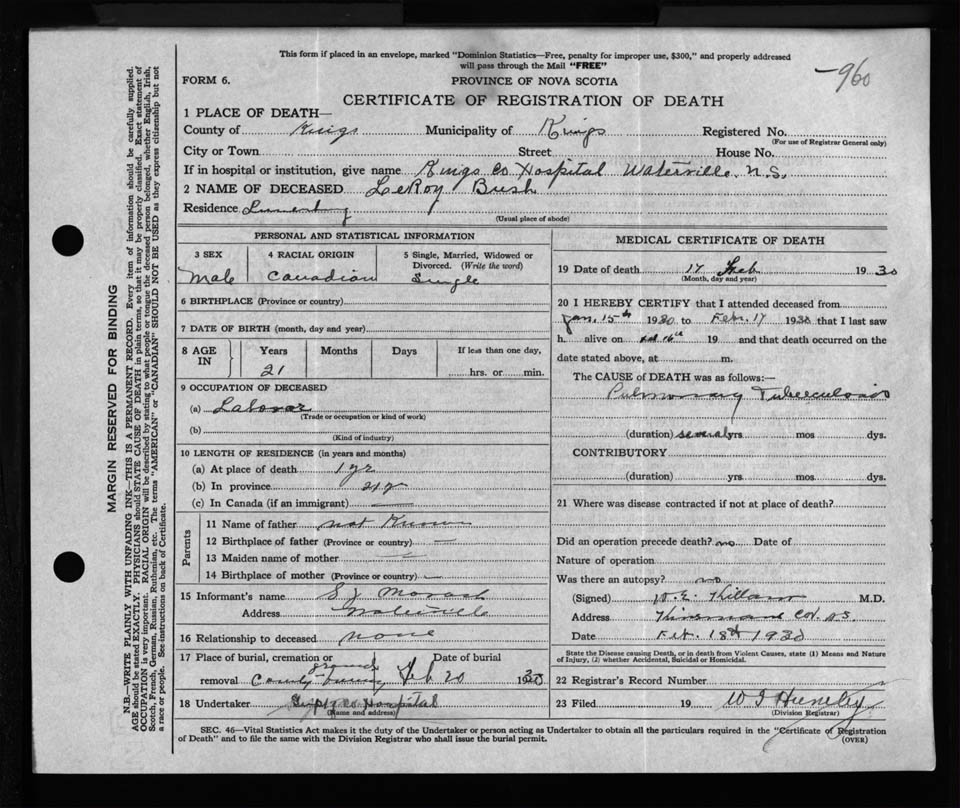 This form if placed in an envelope, marked "Dominion Statistics—Free, penalty for improper use, $300," and properly addressed
will pass through the Mail "FREE"
-960
FORM 6.
PROVINCE OF NOVA SCOTIA
CERTIFICATE OF REGISTRATION OF DEATH
1 PLACE OF DEATH—
County of Kings Municipality of Kings Registered No.
(For use of Registrar General only)
City or Town Street House No.
If in hospital or institution, give name Kings Co Hospital Waterville. N.S.
2 NAME OF DECEASED LeRoy Bush
Residence Lunenburg
(Usual place of abode)
PERSONAL AND STATISTICAL INFORMATION
3 SEX 4 RACIAL ORIGIN 5 Single, Married, Widowed or Divorced. (Write the word)
Male Canadian Single
6 BIRTHPLACE (Province or country)
7 DATE OF BIRTH (month, day and year)
8 AGE IN Years Months Days If less than one day,
21 hrs. or min.
9 OCCUPATION OF DECEASED
(a) Laborer
(Trade or occupation or kind of work)
(b)
(Kind of industry)
10 LENGTH OF RESIDENCE (in years and months)
(a) At place of death 1 yr
(b) In province 21 yr
(c) In Canada (if an immigrant)
Parents
11 Name of father not Known
12 Birthplace of father (Province or country) —
13 Maiden name of mother —
14 Birthplace of mother (Province or country) —
15 Informant's name S J
Address Waterville
16 Relationship to deceased none
17 Place of burial, cremation or Date of burial
removal County Feb 20 1930
18 Undertaker Co Hospital
(Name and address)
MEDICAL CERTIFICATE OF DEATH
19 Date of death 17 Feb 1930
(Month, day and year)
20 I HEREBY CERTIFY that I attended deceased from
Jan. 15th 1930 to Feb. 17 1930 that I last saw
h alive on 16th 19 and that death occurred on the
date stated above, at m.
The CAUSE of DEATH was as follows:—
Pulmonary Tuberculosis
(duration) several yrs. mos dys.
CONTRIBUTORY
(duration) yrs mos dys.
21 Where was disease contracted if not at place of death?
Did an operation precede death? no Date of
Nature of operation
Was there an autopsy? no
(Signed) M.D.
Address N.S.
Date Feb. 18th 1930
State the Disease causing Death, or in death from Violent Causes, state (1) Means and Nature
of Injury, (2) whether Accidental, Suicidal or Homicidal.
22 Registrar's Record Number
23 Filed 19
(Division Registrar)
SEC. 46—Vital Statistics Act makes it the duty of the Undertaker or person acting as Undertaker to obtain all the particulars required in the "Certificate of Registration
of Death" and to file the same with the Division Registrar who shall issue the burial permit.
(OVER)
MARGIN RESERVED FOR BINDING
N.B.—WRITE PLAINLY WITH UNFADING INK—THIS IS A PERMANENT RECORD. Every item of information should be carefully supplied.
AGE should be stated EXACTLY. PHYSICIANS should STATE CAUSE OF DEATH in plain terms, so that it may be properly classified. Exact statement of
OCCUPATION is very important. RACIAL ORIGIN will be described by stating to what people or tongue the deceased person belonged, whether English, Irish,
Scotch, French, German, Russian, Ruthenian, etc. The terms "AMERICAN" or "CANADIAN" SHOULD NOT BE USED as they express citizenship but not
a race or people. See instructions on back of Certificate.